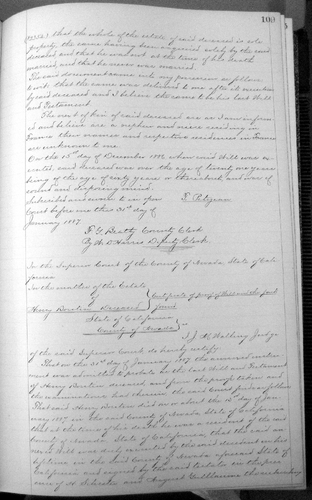 100
that the whole of the estate of said deceased is sole
property, the same having been acquired solely by the said
deceased and that he was not at the time of his death
married, and that he never was married.
The said document came into my possession as follows
to wit: that the same was delivered to me after its execution
by said deceased and I believe the same to be his last Will
and Testament.
The next of kin of said deceased are as I am inform
ed and believe are a nephew and niece residing in
France their names and respective residences in France
are unknown to me.
On the 15th day of December 1886 when said Will was ex
ecuted, said deceased was over the age of twenty one years
being of the age of sixty years or thereabout and was of
sound and disposing mind.
Subscribed and sworn to in open
Court before me this day of
January 1887.
F. G. Beatty County Clerk
By Harris Deputy Clerk
In the Superior Court of the County of Nevada State of Cal
ifornia
In the matter of the Estate
of
Henry Deceased
Certificate of proof of Will and the facts
found
State of California
County of Nevada
I J. M. Walling Judge
of the said Superior Court, do hereby certify:
That on the day of January 1887 the annexed instru
ment was admitted to probate as the last Will and Testament
of Henry deceased, and from the proofs taken and
the examination had therein the said Court finds as follows:
That said Henry died on or about the day of Jan
uary 1887 in the said County of Nevada State of California
that at the time of his death he was a resident of the said
County of Nevada, State of California, that the said an
nexed Will was duly executed by the said decedent in his
lifetime in the said County of Nevada aforesaid State of
California and signed by the said testator in the pres
ence of and August Guillaume the subscribing